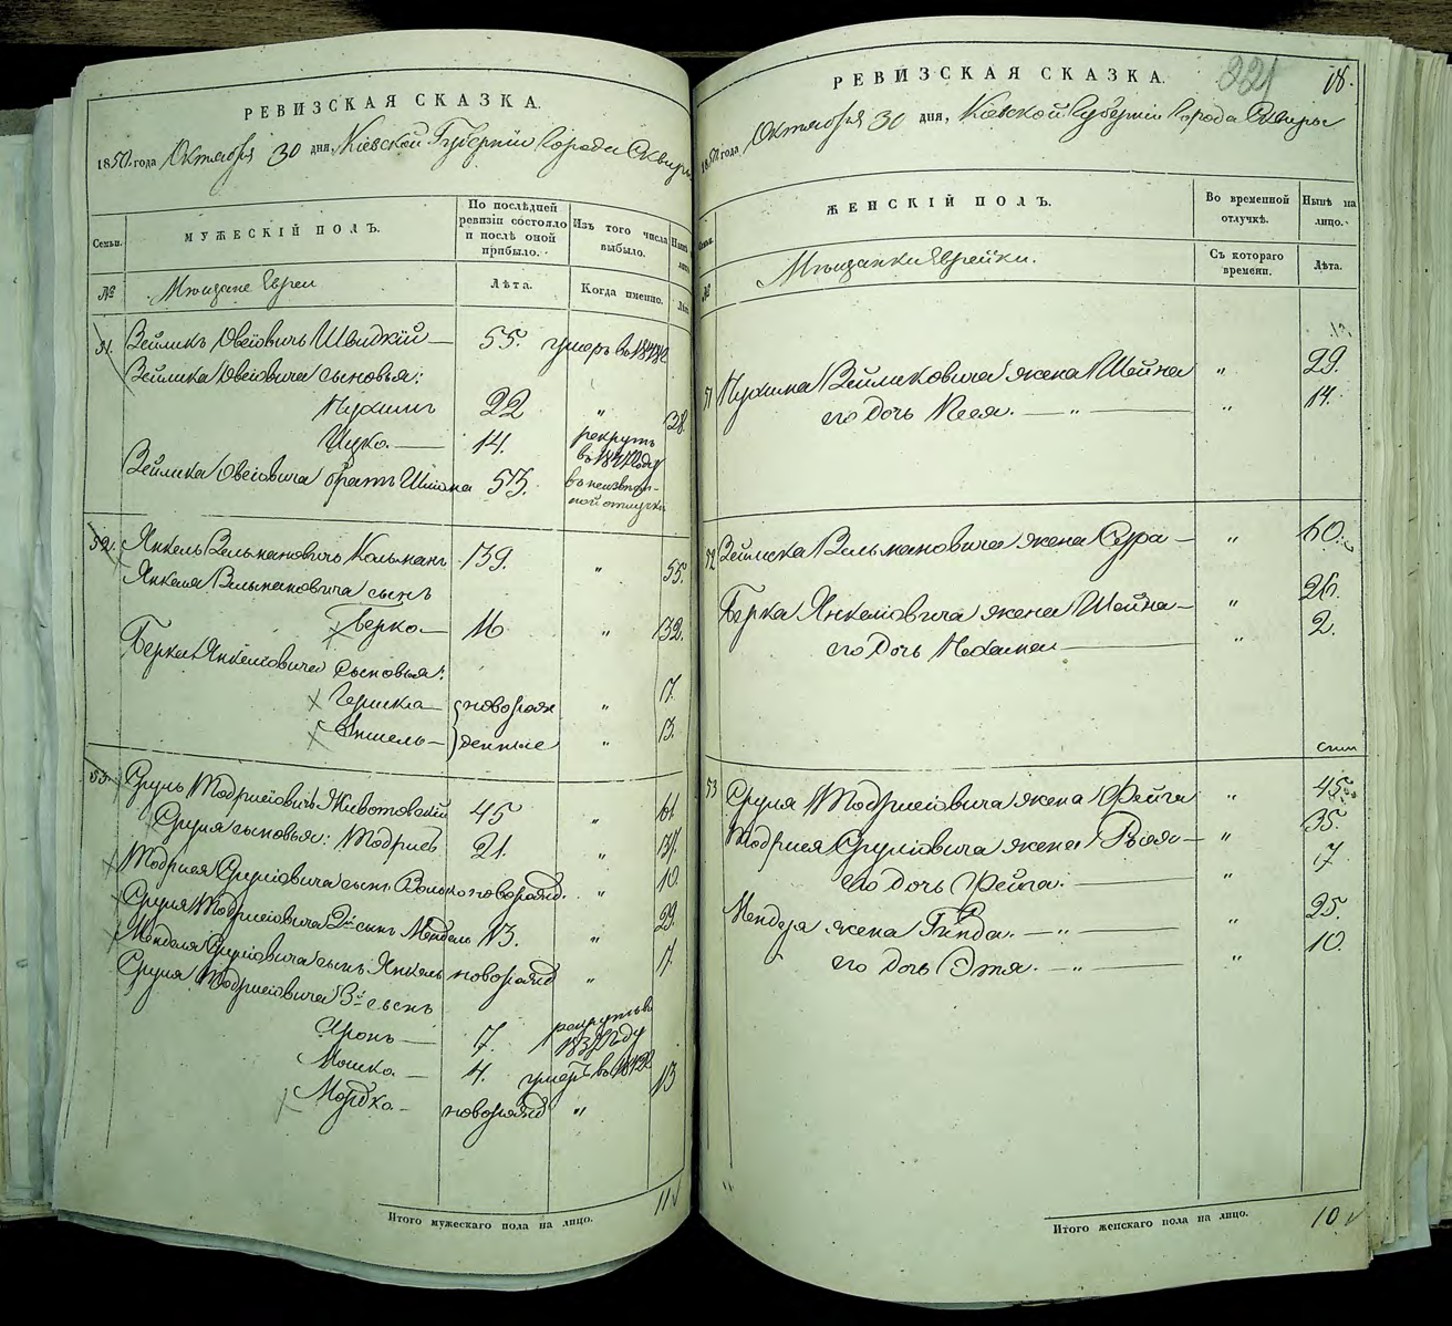 РЕВИЗСКАЯ СКАЗКА.
1850 года Октября 30 дня, Кіевской Губерніи Города Сквиры
Семьи.
МУЖЕСКІЙ ПОЛЪ.
По послѣдней ревизіи состояло и послѣ оной прибыло.
Изъ того числа выбыло.
Нынѣ
№
Мѣщане Евреи
Лѣта.
Когда именно.
Лѣта
51. Зейликъ Овсіовичъ Швидкій — 55. умеръ въ 1848
Зейлика Овсіовича сыновья:
22 " 38.
Ицко. — 14. рекрутъ въ 184 году
Зейлика Овсіовича братъ 53. въ неизвѣстной отлучкѣ
52. Янкель Зельмановичъ 39. " 55.
Янкеля Зельмановича сынъ
Берко — 16 " 32.
Берка Янкеліовича сыновья:
Гершка — новорож "
Аншель — денные "
53. Сруль Тодрисіовичъ Животовскій 45 " 61
Сруля сыновья: Тодрисъ 21. " 37.
Тодриса Сруліовича сынъ Волько новорожд. " 10
Сруля Тодрисіовича 2й сынъ Мендель 13. " 29.
Менделя Сруліовича сынъ Янкель новорожд "
Сруля Тодрисіовича 3й сынъ
7. рекрутъ въ году
Мошко — 4. умеръ въ
Мордко — новорожд " 13
Итого мужескаго пола на лицо. 11
РЕВИЗСКАЯ СКАЗКА.
221 18.
1850 года Октября 30 дня, Кіевской Губерніи Города Сквиры
Семьи.
ЖЕНСКІЙ ПОЛЪ.
Во временной отлучкѣ.
Нынѣ на лицо.
№
Мѣщанки Еврейки.
Съ котораго времени.
Лѣта.
51 Зейликовича жена Шейна " 29.
его дочь Песя. — " — " 14.
52 Зельмановича жена Сура — " 60.
Берка Янкеліовича жена Шейна — " 26.
его дочь " 2.
53 Сруля Тодрисіовича жена Фейга " 45
Тодриса Сруліовича жена — " 35.
его дочь Фейга. — " 17
Менделя жена Гинда. — " — " 25.
его дочь Этя. — " — " 10.
Итого женскаго пола на лицо. 10